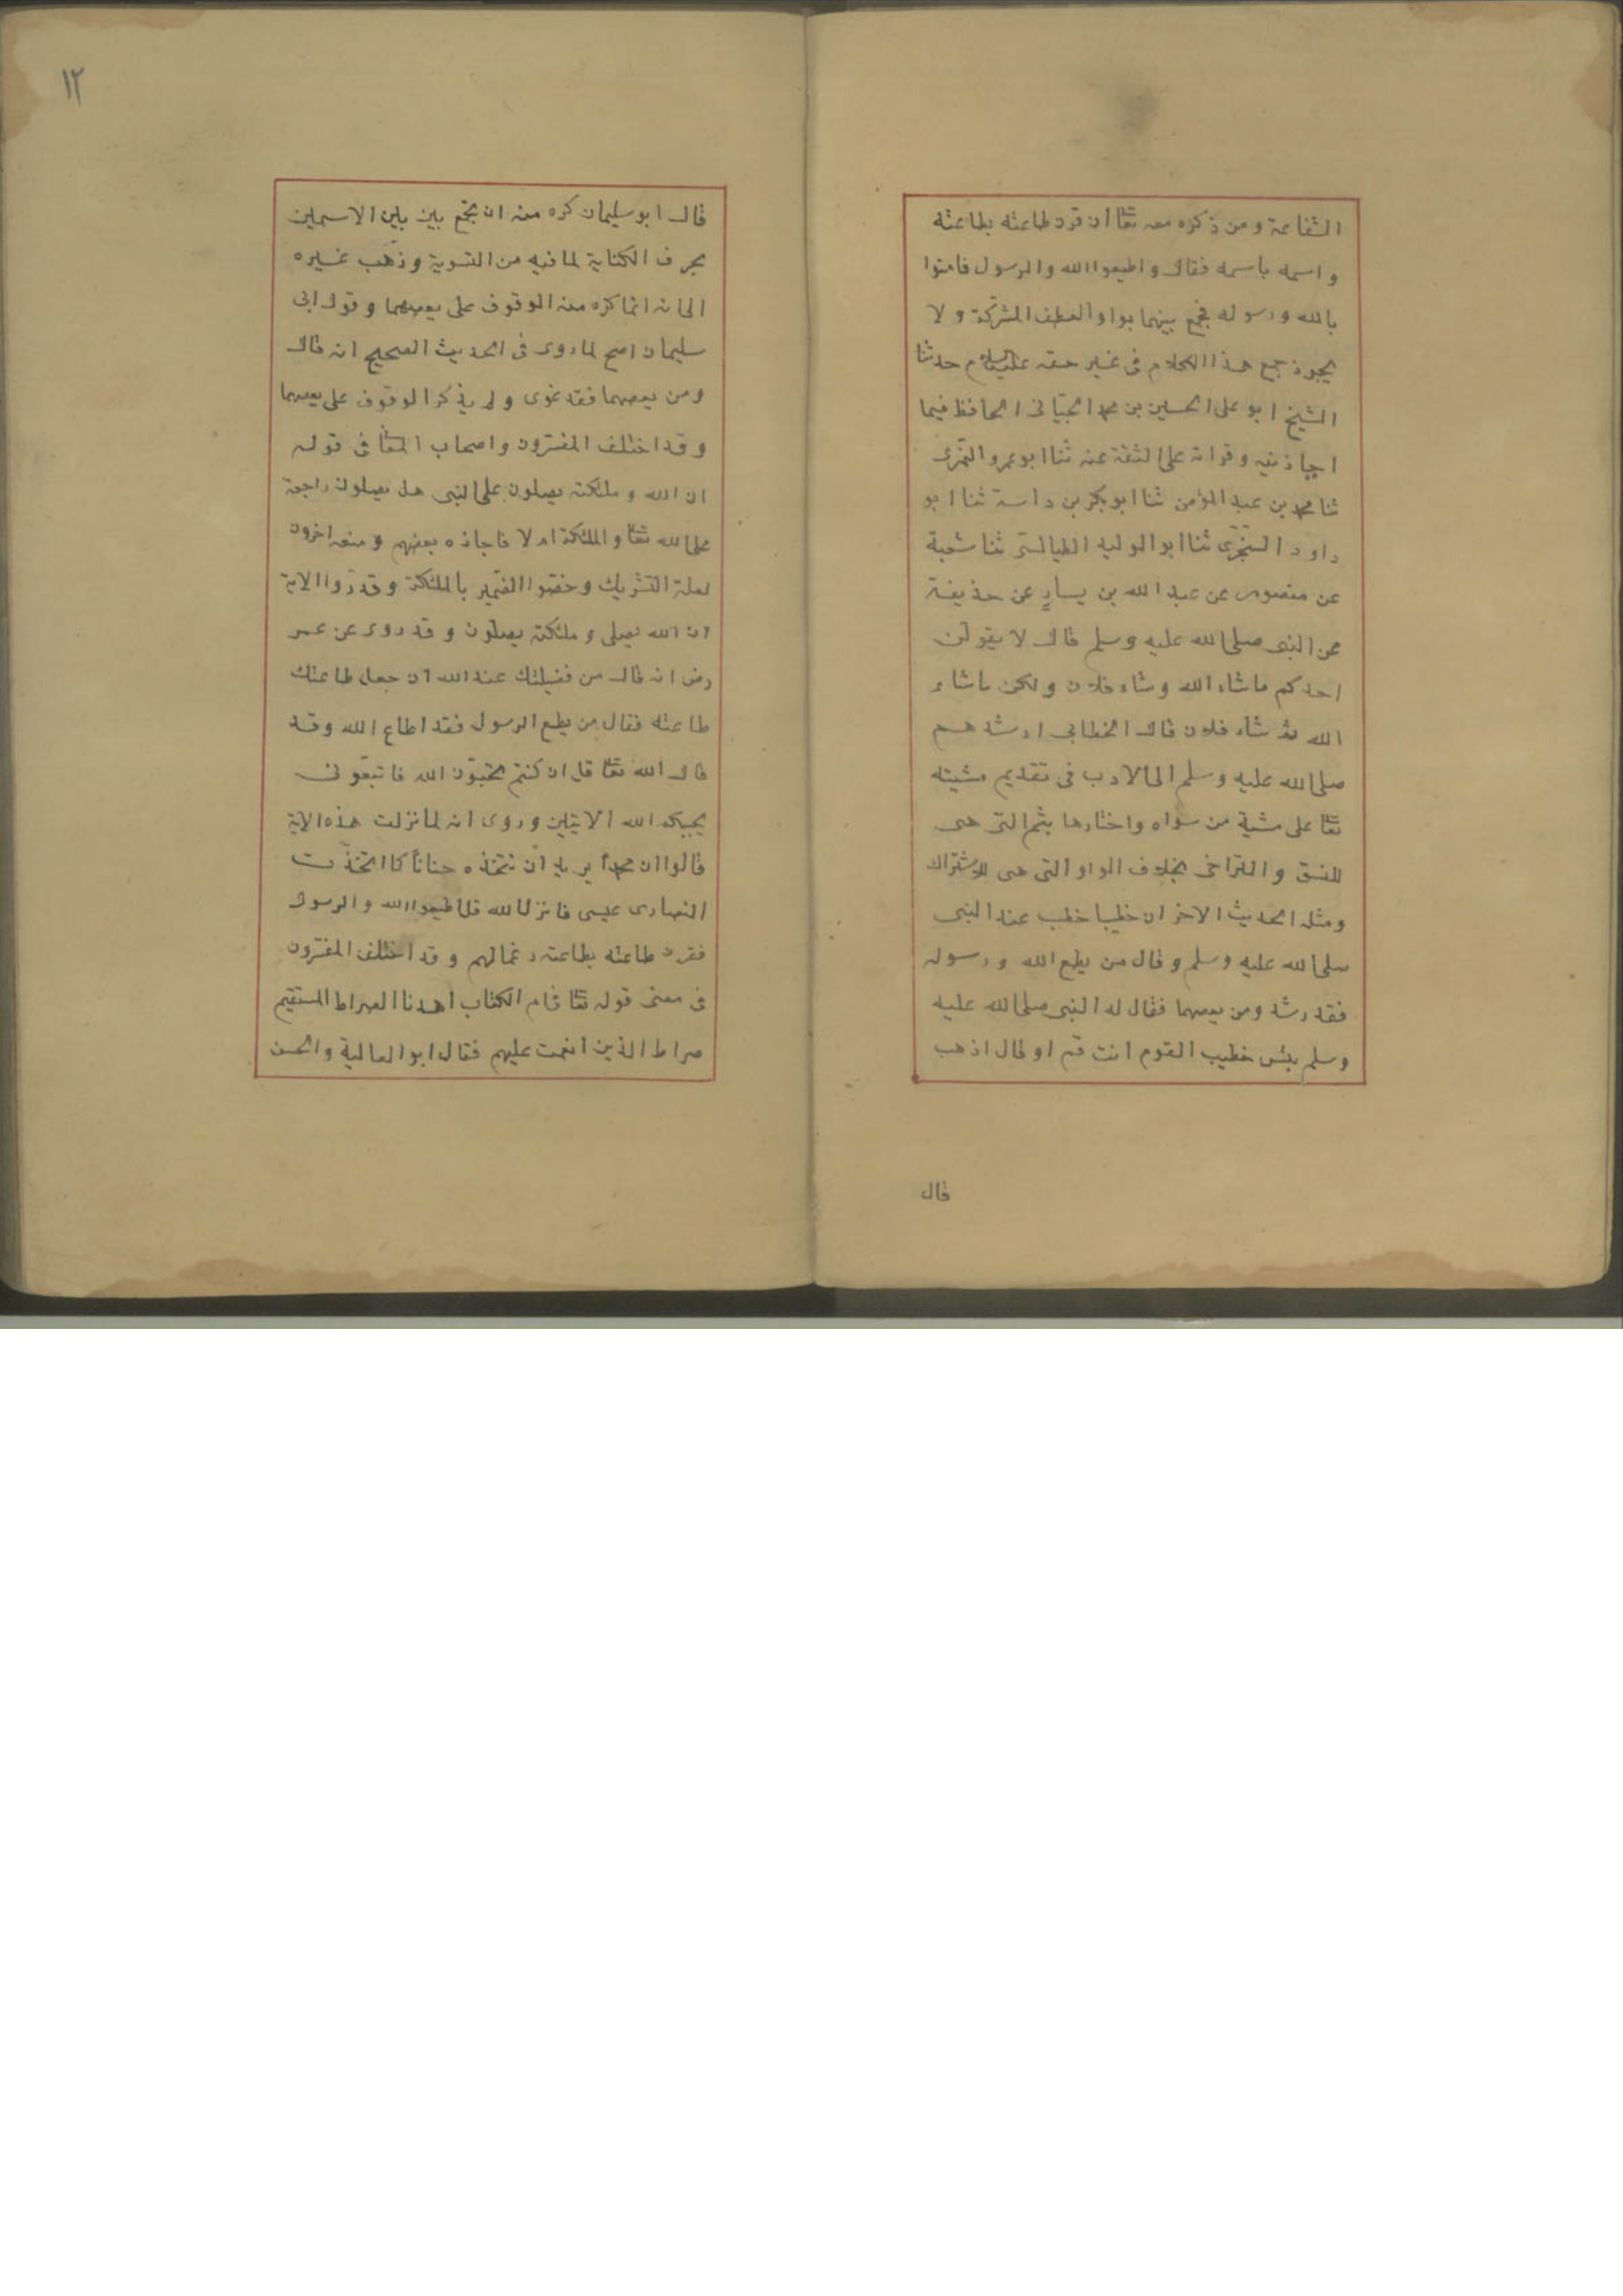 الشفاعة ومن ذكره معه تعا ان قرن طاعته بطاعته
واسمه باسمه فقال واطيعوا الله والرسول فامنوا
بالله ورسوله فجمع بينهما بواو العطف المشركة ولا
يجوز جمع هذا الكلام فى غير حقه عليه السلام حدثنا
الشيخ ابو على الحسين بن محمد الجيانى الحافظ فيما
اجازنيه وقراته على الثقة عنه ثنا ابو عمرو النمرى
ثنا محمد بن عبد المؤمن ثنا ابو بكر بن داسة ثنا ابو
داود السجزى ثنا ابو الوليد الطيالسى ثنا شعبة
عن منصور عن عبد الله بن يسار عن حذيفة
عن النبى صلى الله عليه وسلم قال لا يقولن
احدكم ماشاء الله وشاء فلان ولكن ماشاء
الله ثم شاء فلان قال الخطابى ارشدهم
صلى الله عليه وسلم الى الادب فى تقديم مشيته
تعا على مشية من سواه واختارها بثم التى هى
للنسق والتراخى بخلاف الواو التى هى للاشتراك
ومثله الحديث الاخر ان خطيبا خطب عند النبى
صلى الله عليه وسلم وقال من يطع الله ورسوله
فقد رشد ومن يعصهما فقال له النبى صلى الله عليه
وسلم بئس خطيب القوم انت قم او قال اذهب
قال
١٢
قال ابو سليمان كره منه ان يجمع بين بين الاسمين
بحرف الكناية لما فيه من التسوية وذهب غيره
الى انه انما كره منه الوقوف على يعصهما وقول ابى
سليمان اصح لما روى فى الحديث الصحيح انه قال
ومن يعصهما فقد غوى ولم يذكر الوقوف على يعصهما
وقد اختلف المفسرون واصحاب المعا فى قوله
ان الله وملئكته يصلون على النبى هل يصلون راجعة
على الله تعا والملئكة ام لا فاجازه بعضهم ومنعه اخرون
لعلة التشريك وخصوا الضمير بالملئكة وقدروا الاية
ان الله يصلى وملئكته يصلون وقد روى عن عمر
رض انه قال من فضيلتك عند الله ان جعل طاعتك
طاعته فقال من يطع الرسول فقد اطاع الله وقد
قال الله تعا قل ان كنتم تحبون الله فاتبعونى
يحببكم الله الايتين وروى انه لما نزلت هذه الاية
قالوا ان محمدا يريد ان نتخذه حنانا كما اتخذت
النصارى عيسى فانزل الله قل اطيعوا الله والرسول
فقرن طاعته بطاعته رغما لهم وقد اختلف المفسرون
فى معنى قوله تعا فى ام الكتاب اهدنا الصراط المستقيم
صراط الذين انعمت عليهم فقال ابو العالية والحسن